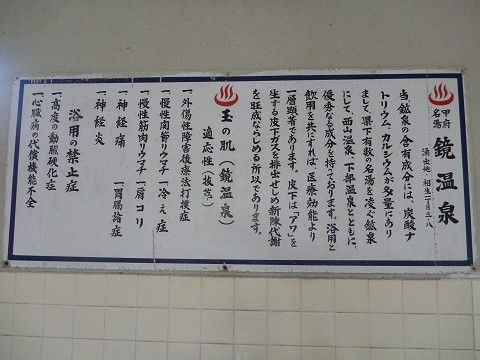 甲府
名湯
鏡温泉
湧出地・相生二丁目三・八
当鉱泉の含有成分には、炭酸ナ
トリウム、カルシウムが多量にあり
まして県下有数の名湯を凌ぐ鉱泉
にて、西山温泉、下部温泉とともに、
優秀なる成分を持っております。浴用と
飲用を共にすれば、医療効能より
一層顕著であります。皮下は「アワ」を
生ずる皮下ガスを排出せしめ新陳代謝
を旺成ならしめる所以であります。
玉の肌(鏡温泉)
適応性(抜萃)
一、外傷性障害後療法打撲症
一、慢性関節リウマチ 一、冷え症
一、慢性筋肉リウマチ 一、肩コリ
一、神経痛 一、胃腸諸症
一、神経炎
浴用の禁止症
一、高度の動脈硬化症
一、心臓病の代償機能不全